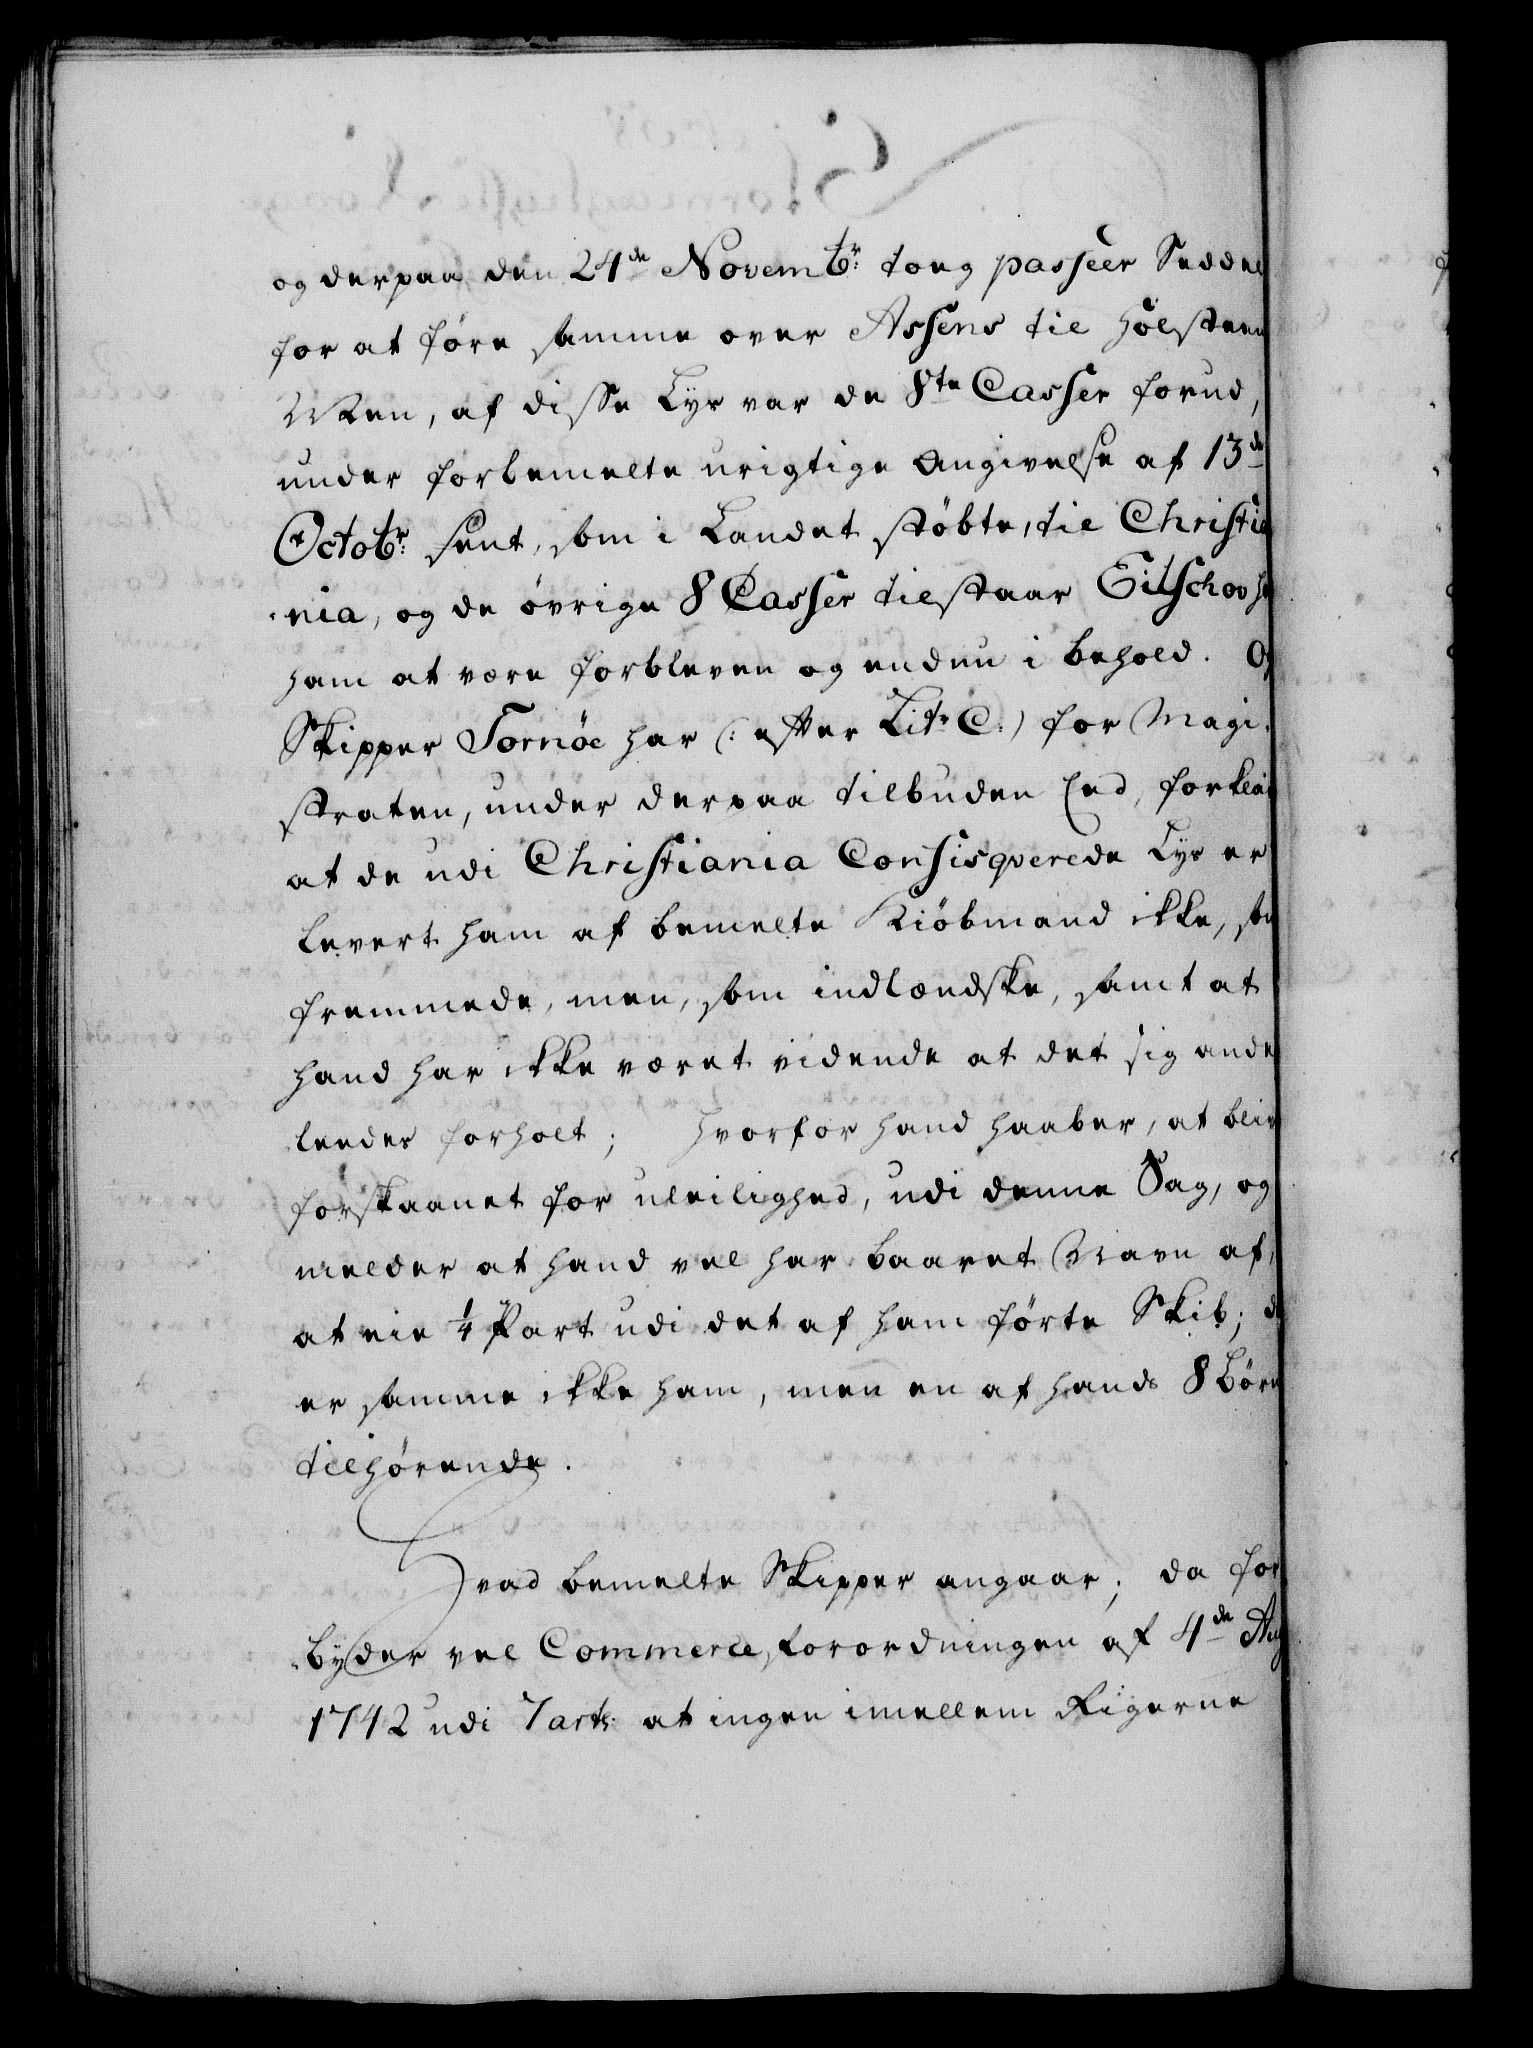 og derpaa den 24de Novembr: toeg passeer Seddel
for at føre samme over Assens til Holsteen
Men, af disse Lys var de 8te Casser forud,
under forbemelte urigtige Angivelse af 13de
Octobr: sent, som i Landet støbte, til Christia
-nia, og de øvrige 8 Casser tilstaar Eilschov h
ham at være forbleven og endnu i behold. Og
Skipper Tornöe har (: efter Litr C:) for Magi-
straten, under derpaa tilbuden Eed, forklar
at de udi Christiania Confisqverede Lys er
levert ham af bemelte Kiöbmand ikke, so
fremmede, men, som indlændske, samt at
hand har ikke været vidende at det sig ander
leedes forholt; hvorfor hand haaber, at bliv
forskaanet for uleilighed, udi denne Sag, og
melder at hand vel har baaret Navn af,
at eie 1/4 Part udi det af ham førte Skib; d
er samme ikke ham, men en af hands 8 Børn
tilhørende.
Hvad bemelte Skipper angaar; da for
-byder vel Commerce forordningen af 4de Aug
1742 udi 7 art: at ingen imellem Rigerne